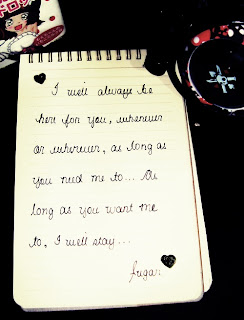 I will always be
here for you, whenever
or wherever, as long as
you need me to... As
long as you want me
to, I will stay...